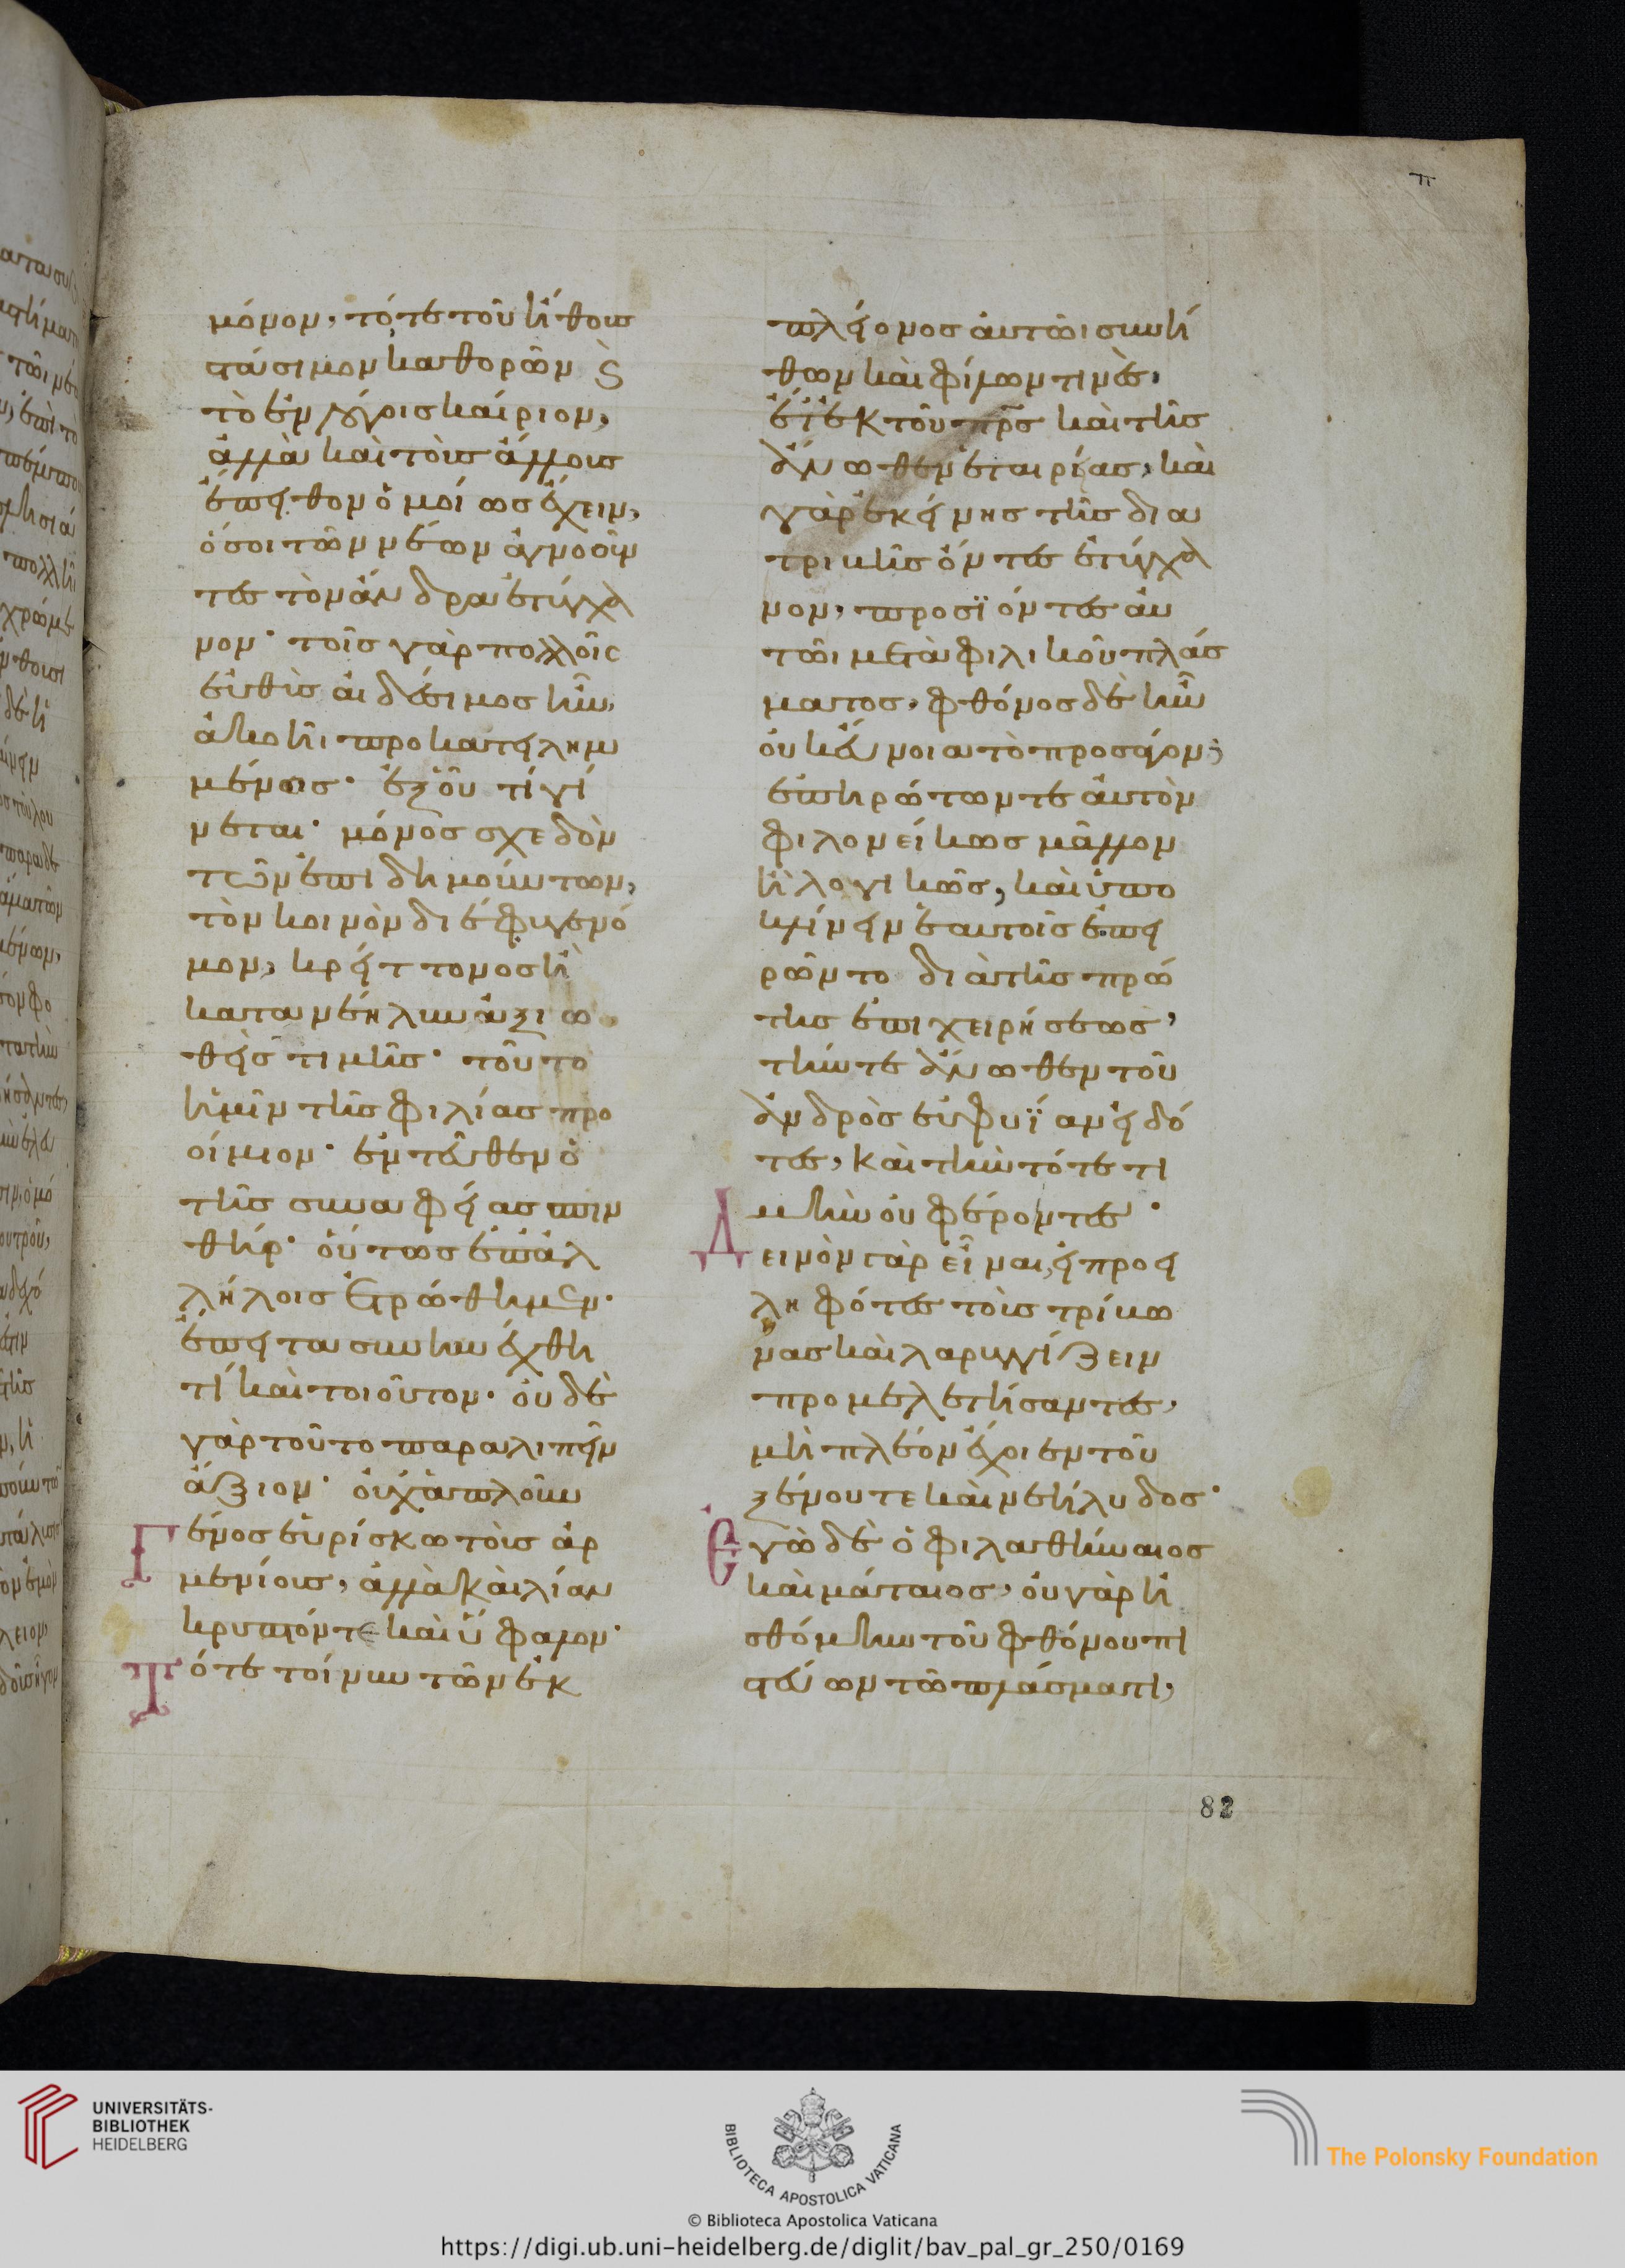 π
μόνον, τότε τοῦ ἤθους
στάσιμον καθορῶν ϗ
τὸ ἐν λόγοις καίριον,
ἀλλὰ καὶ τοὺς ἄλλους
ἔπειθον ὁμοίως ἔχειν,
ὅσοι τῶν νέων ἀγνοοῦν
τες τὸν ἄνδρα ἐτύγχα
νον· τοῖς γὰρ πολλοῖς
εὐθὺς αἰδέσιμος ἦν,
ἀκοῆι προκατειλημ
μένοις· ἐξ οὗ τί γί
νεται· μόνος σχεδὸν
τῶν ἐπιδημούντων,
τὸν κοινὸν διέφυγε νό
μον, κρείττονος ἢ
κατα νεήλυν ἀξιω
θεὶς τιμῆς· τοῦτο
ἡμῖν τῆς φιλίας προ
οίμιον· ἐντεῦθεν ὁ
τῆς συναφείας σπιν
θήρ· οὕτως ἐπ' ἀλ
λήλοις ἐτρώθημεν·
ἔπειτα συνηνέχθη
τί καὶ τοιοῦτον· οὐδὲ
γὰρ τοῦτο παραλιπεῖν
ἄξιον· οὐχ ἁπλοῦν
Γένος εὑρίσκω τοὺς ἀρ
μενίους, ἀλλὰ καὶ λίαν
κρυπτόν τε καὶ ὕφαλον·
Τότε τοίνυν τῶν ἐκ
πλείονος αὐτῶι συνή
θων καὶ φίλων τινὲς,
ἔτι ἐκ τοῦ πρς καὶ τῆς
ἄνωθεν ἑταιρίας, καὶ
γὰρ ἐκείνης τῆς δια
τριβῆς ὄντες ἐτύγχα
νον, προσϊόντες αὐ
τῶι μετὰ φιλικοῦ πλάσ
ματος, φθόνος δὲ ἦν
οὐκ εὔνοια τὸ προσάγον,
ἐπηρώτων τε αὐτὸν
φιλονείκως μᾶλλον
ἢ λογικῶς, καὶ ὑπο
κλίνειν ἑαυτοῖς ἐπει
ρῶντο διὰ τῆς πρώ
της ἐπιχειρήσεως,
τήν τε ἄνωθεν τοῦ
ἀνδρὸς εὐφυΐαν εἰδό
τες, καὶ τὴν τότε τι
μὴν οὐ φέροντες·
Δεινὸν γὰρ εἶναι, εἰ προει
ληφότες τοὺς τρίβω
νας καὶ λαρυγγίζειν
προμελετήσαντες,
μὴ πλέον ἔχοιεν τοῦ
ξένου τε καὶ νεήλυδος·
Ἐγὼ δὲ ὁ φιλαθήναιος
καὶ μάταιος, οὐ γὰρ ἠ
σθόμην τοῦ φθόνου πι
στεύων τῶ πλάσματι,
82
UNIVERSITÄTS-
BIBLIOTHEK
HEIDELBERG
BIBLIOTECA APOSTOLICA VATICANA
The Polonsky Foundation
© Biblioteca Apostolica Vaticana
https://digi.ub.uni-heidelberg.de/diglit/bav_pal_gr_250/0169